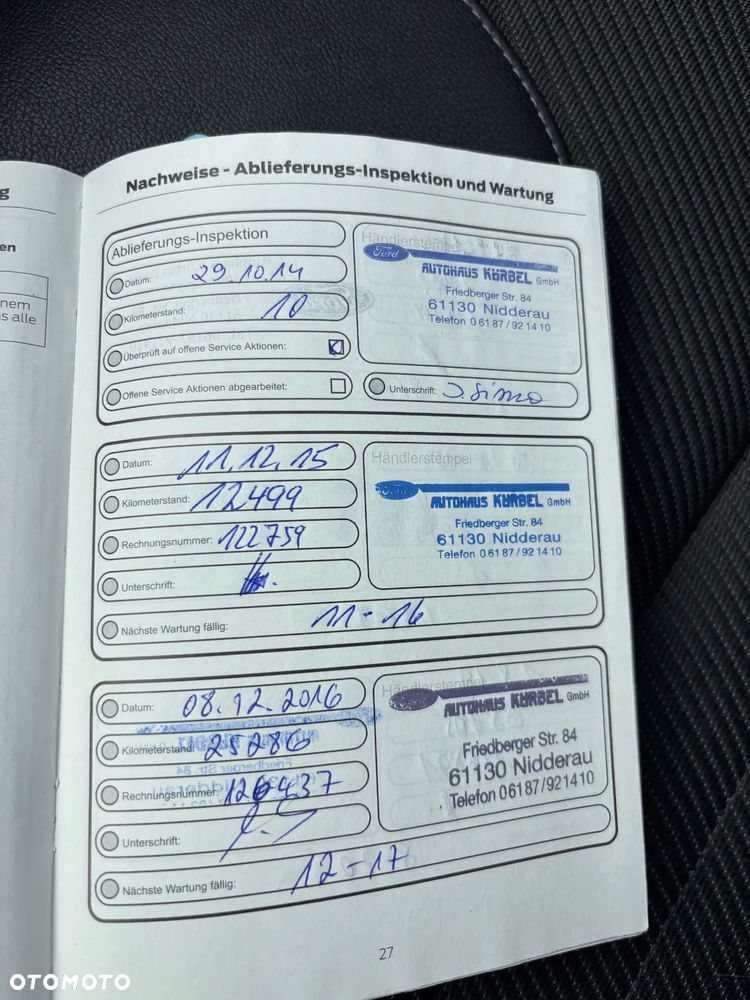 g
en
nem
s alle
Nachweise - Ablieferungs-Inspektion und Wartung
Ablieferungs-Inspektion
Datum: 29.10.14
Kilometerstand: 10
Überprüft auf offene Service Aktionen:
Offene Service Aktionen abgearbeitet:
Händlerstempel
Ford
AUTOHAUS KÖRBEL GmbH
Friedberger Str. 84
61130 Nidderau
Telefon 06187/921410
Unterschrift:
Datum: 11.12.15
Kilometerstand: 12499
Rechnungsnummer: 122759
Unterschrift:
Nächste Wartung fällig: 11-16
Händlerstempel
AUTOHAUS KÖRBEL GmbH
Friedberger Str. 84
61130 Nidderau
Telefon 06187/921410
Datum: 08.12.2016
Kilometerstand: 25286
Rechnungsnummer: 126437
Unterschrift:
Nächste Wartung fällig: 12-17
Händlerstempel
AUTOHAUS KÖRBEL GmbH
Friedberger Str. 84
61130 Nidderau
Telefon 06187/921410
27
OTOMOTO